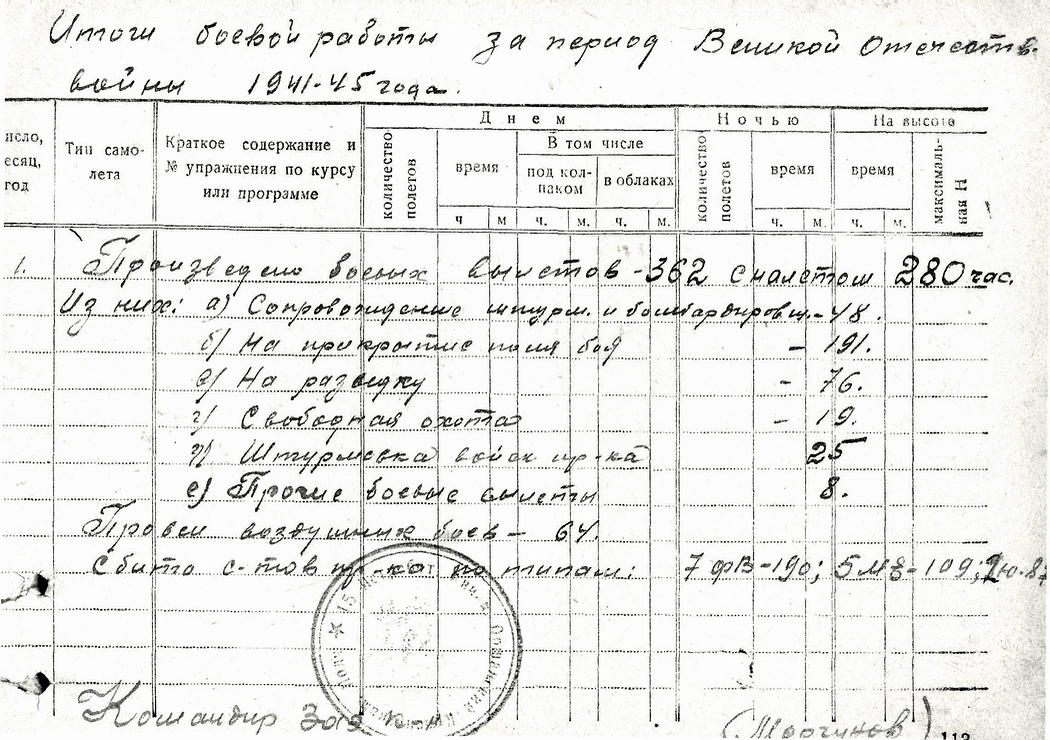 Итоги боевой работы за период Великой Отечеств.
войны 1941-45 года.
Днем Ночью На высоте
исло, есяц, год
Тип само-лета
Краткое содержание и № упражнения по курсу или программе
количество полетов
время
В том числе
под кол-паком
в облаках
количество полетов
время
время
максималь-ная Н
ч м ч. м. ч. м. ч. м. ч. м.
1. Произведено боевых вылетов - 362 с налетом 280 час.
Из них: а) Сопровождение штурм. и бомбардировщ. - 48.
б) На прикрытие поля боя - 191.
в) На разведку - 76.
г) Свободная охота - 19.
д) Штурмовка войск пр-ка 25
е) Прочие боевые вылеты 8.
Провел воздушных боев - 64.
Сбито с-тов пр-ка по типам: 7 ФВ-190; 5 Ме-109; 2 Ю-87
Командир
(Моргунов)
113